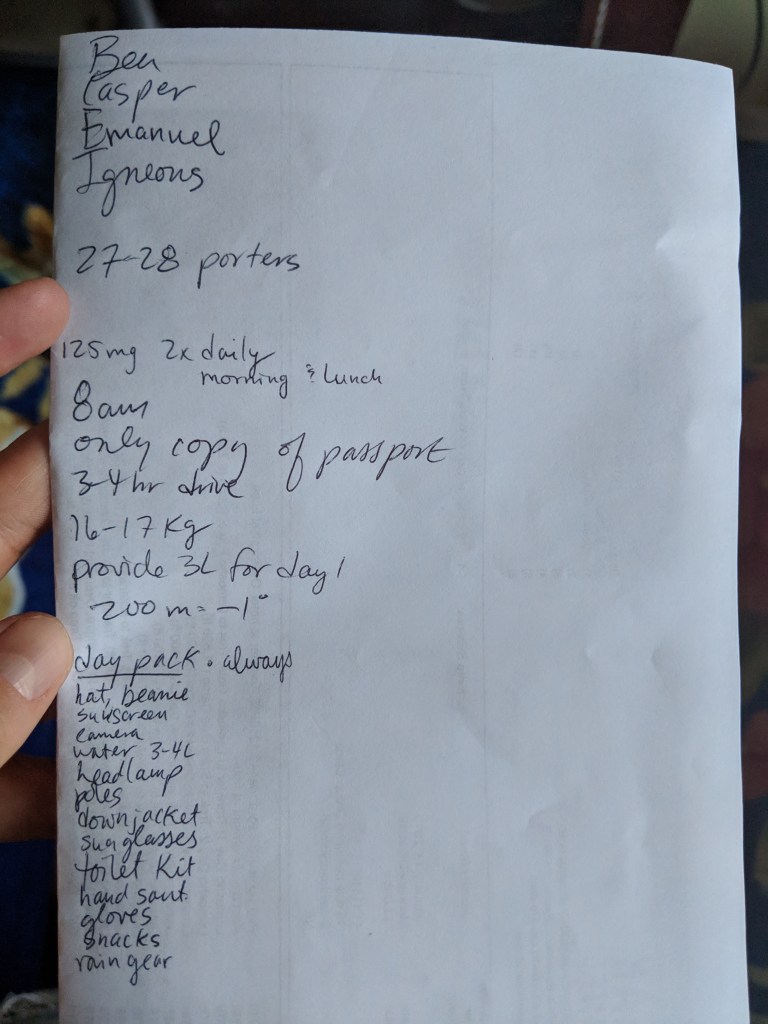 Ben
Casper
Emanuel
Igneous
27-28 porters
125mg 2x daily
morning & lunch
8am
only copy of passport
3-4 hr drive
16-17 Kg
provide 3L for day 1
200 m = -1°
day pack • always
hat, beanie
sunscreen
camera
water 3-4L
headlamp
poles
down jacket
sunglasses
toilet Kit
hand sanit.
gloves
snacks
rain gear